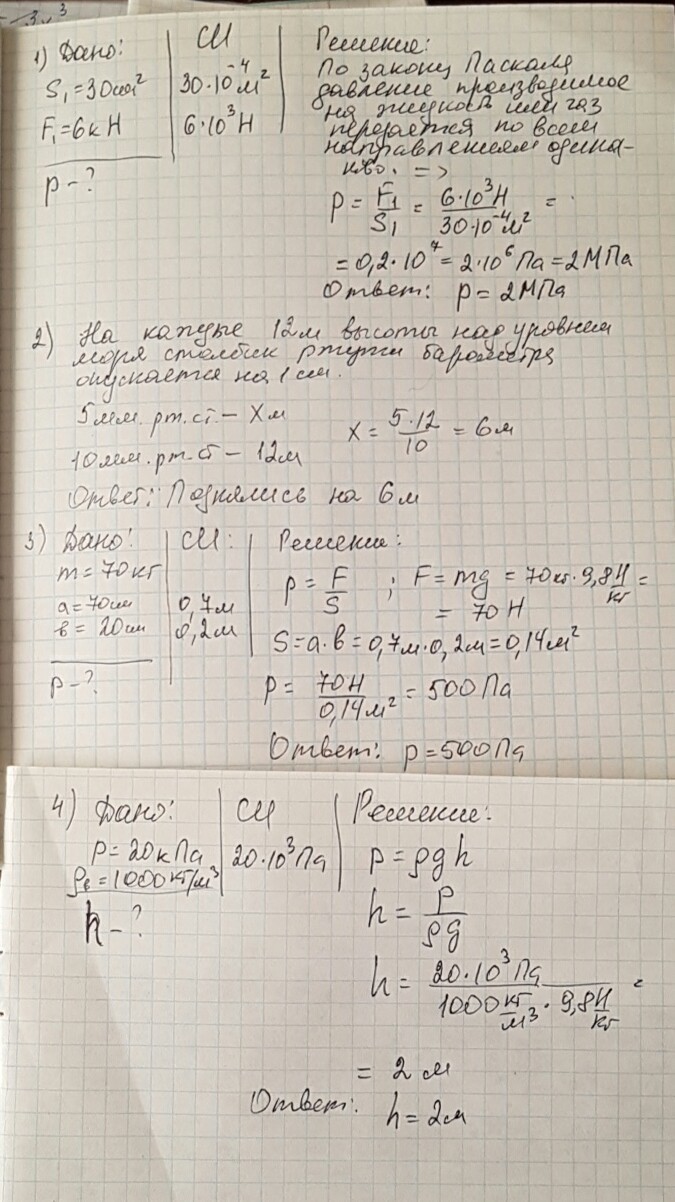 1) Дано:
СИ
Решение:
S₁=30см²
30·10⁻⁴м²
F₁=6кН
6·10³Н
p-?
По закону Паскаля
давление производимое
на жидкость или газ
передается по всем
направлениям одина-
ково. =>
p = F₁/S₁ = 6·10³Н/30·10⁻⁴м² =
=0,2·10⁷=2·10⁶Па=2МПа
Ответ: p=2МПа
2) На каждые 12м высоты над уровнем
моря столбик ртути барометра
опускается на 1см.
5мм.рт.ст - Xм
10мм.рт.ст - 12м
X = 5·12/10 = 6м
Ответ: Поднялись на 6м
3) Дано:
СИ:
Решение:
m=70кг
a=70см
0,7м
в=20см
0,2м
p-?
p = F/S ; F=mg=70кг·9,8Н/кг=
= 70Н
S=a·в=0,7м·0,2м=0,14м²
p = 70Н/0,14м² = 500Па
Ответ: p=500Па
4) Дано:
СИ
Решение:
p=20кПа
20·10³Па
ρв=1000кг/м³
h-?
p=ρgh
h = p/ρg
h = 20·10³Па/1000кг/м³·9,8Н/кг =
= 2м
Ответ: h=2м